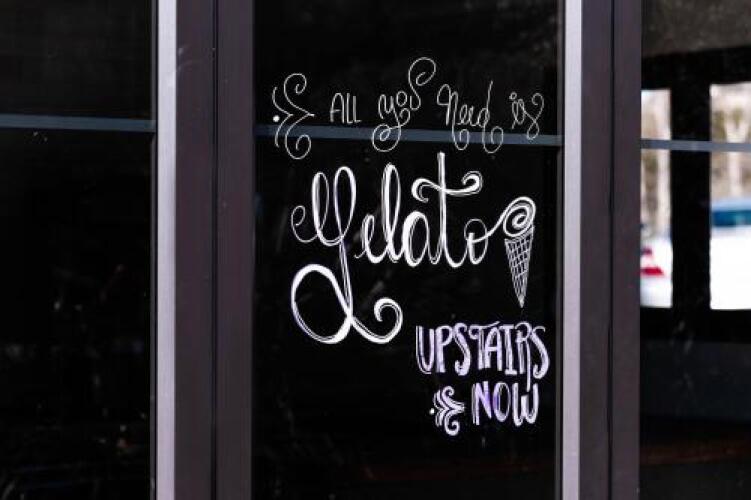 ALL you Need is
Gelato
UPSTAIRS
NOW